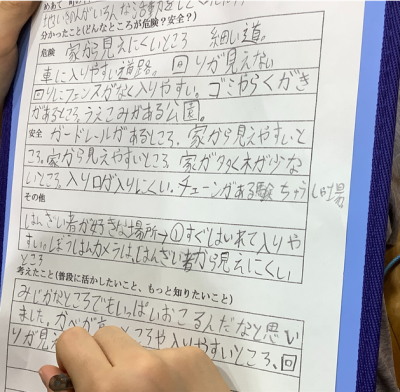 地いきの人がいろんな活動をして
分かったこと(どんなところが危険？安全？)
危険 家から見えにくいところ 細い道。
車に入りやすい道路。回りが見えない
回りにフェンスがなく入りやすい。ゴミやらくがき
があるところ。うえこみがある公園。
安全 ガードレールがあるところ。家から見えやすいと
ころ。家から見えやすいところ。家が多く木が少な
いところ。入り口が入りにくい。チェーンがある ちゅう車場
その他
はんざい者が好きな場所→①すぐはいれて入りや
すい。ぼうはんカメラは、はんざい者から見えにくい
ところ
考えたこと(普段に活かしたいこと、もっと知りたいこと)
みじかなところでもいっぱいおこるんだなと思い
ました。かべが ところや入りやすいところ、回
りが見